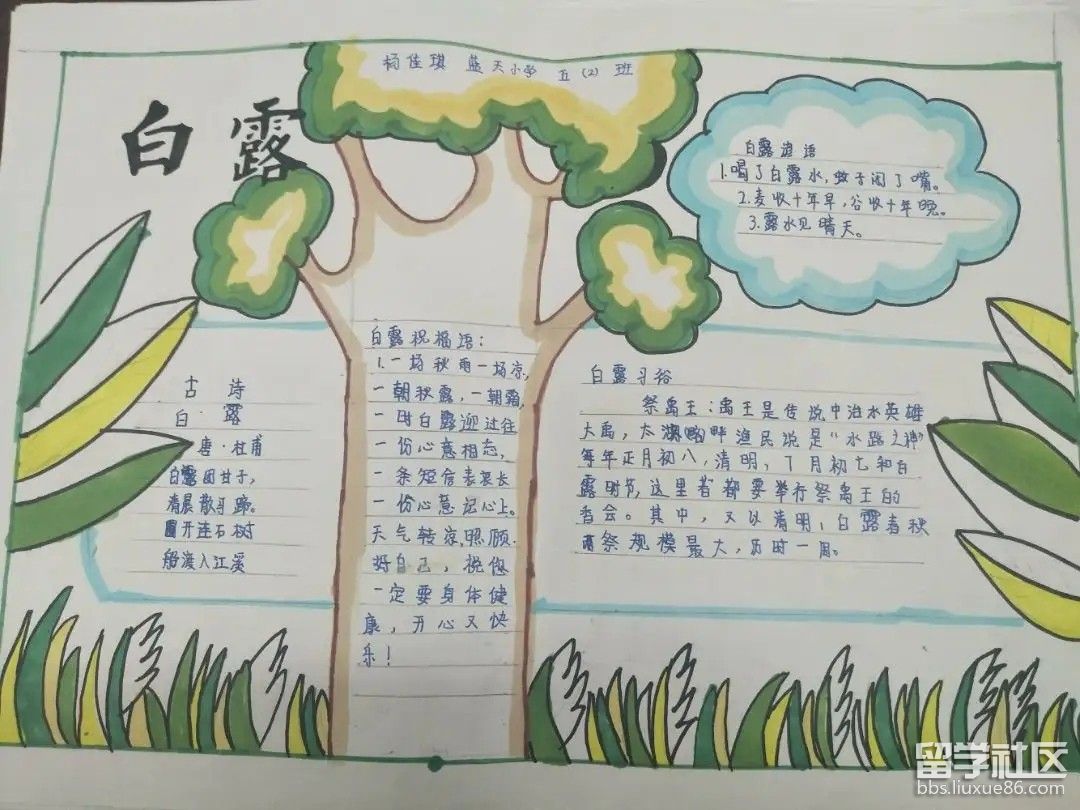 杨佳琪 蓝天小学 五(2)班
白露
白露谚语
1.喝了白露水,蚊子闭了嘴。
2.麦收十年旱,谷收十年晚。
3.露水见晴天。
古诗
白露
唐·杜甫
白露团甘子,
清晨散马蹄。
圃开连石树
船渡入江溪
白露祝福语:
1.一场秋雨一场凉,
一朝秋露,一朝霜,
一时白露迎过往
一份心意相忘,
一条短信表衷长
一份心意记心上。
天气转凉,照顾
好自己,悦他
一定要身体健
康,开心又快
乐!
白露习俗
祭禹王:禹王是传说中治水英雄
大禹,太湖畔渔民说是“水路之神”
每年正月初八,清明,丁月初七和白
露时节,这里者都要举行祭禹王的
香会。其中,又以清明,白露春秋
两祭规模最大,历时一周。
留学社区
bbs.liuxue86.com